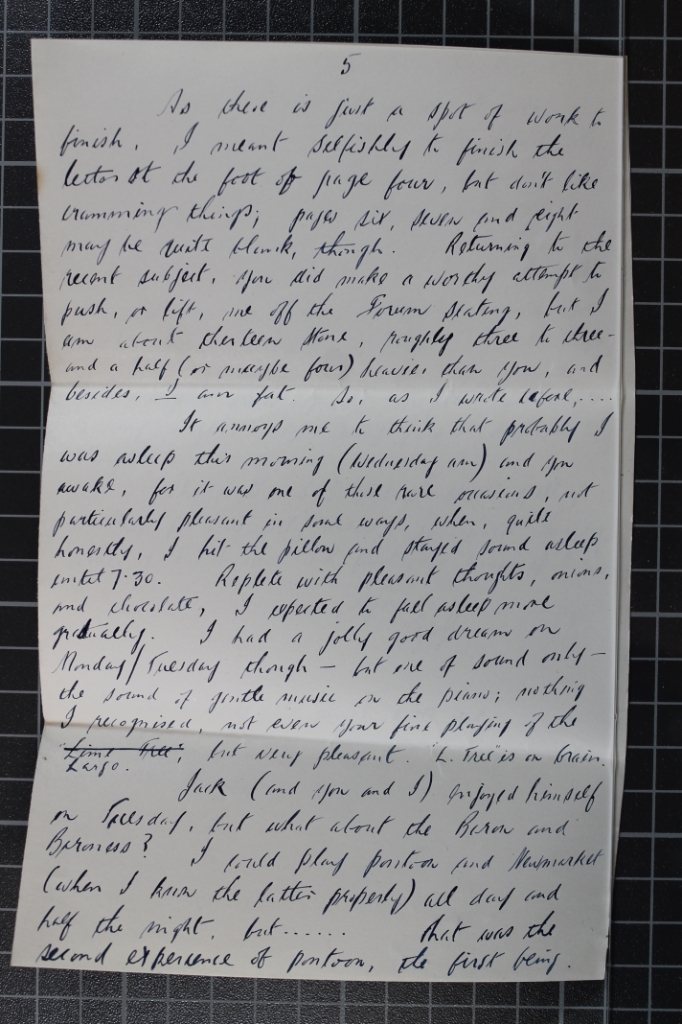 5
As there is just a spot of work to
finish. I meant selfishly to finish the
letter at the foot of page four, but don't like
cramming things; pages six, seven and eight
may be quite blank, though. Returning to the
recent subject, you did make a worthy attempt to
push, or lift, me off the Forum seating, but I
am about thirteen stone, roughly three to three-
and a half (or maybe four) heavier than you, and
besides, I am fat. So, as I wrote before,....
It annoys me to think that probably I
was asleep this morning (Wednesday am) and you
awake, for it was one of those rare occasions, not
particularly pleasant in some ways, when, quite
honestly, I hit the pillow and stayed sound asleep
until 7.30. Replete with pleasant thoughts, onions,
and chocolate, I expected to fall asleep more
gradually. I had a jolly good dream on
Monday/Tuesday though - but one of sound only -
the sound of gentle music on the piano; nothing
I recognised, not even your fine playing of the
"Lime Tree", but very pleasant. "L. Tree" is on brain.
Largo.
Jack (and you and I) enjoyed himself
on Tuesday, but what about the Baron and
Baroness? I could play pontoon and Newmarket
(when I know the latter properly) all day and
half the night, but...... That was the
second experience of pontoon, the first being.